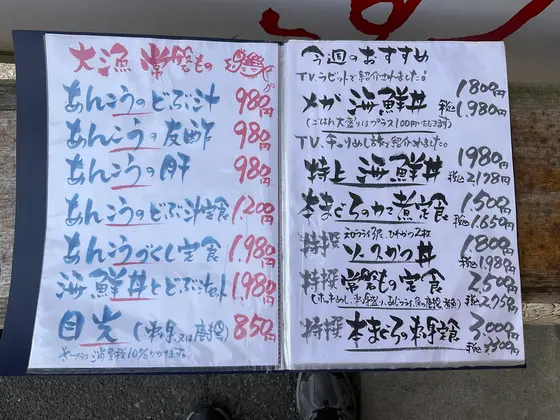 大漁 常磐もの
あんこうのどぶ汁 980円
あんこうの友酢 980円
あんこうの肝 980円
あんこうのどぶ汁定食 1,200円
あんこうづくし定食 1,980円
海鮮丼とどぶ汁セット 1,980円
目光 (刺身又は唐揚) 850円
消費税10%かかります。
今週のおすすめ
TV.ラビットで紹介されました。
メガ 海鮮丼 1800円 税込1,980円
(ごはん大盛りはプラス100円いただきます)
で紹介されました。
特上 海鮮丼 1980円 税込2,178円
本まぐろのカマ煮定食 1,500円 税込1,650円
特撰 ソースかつ丼 1,800円 税込1,980円
特撰 常磐もの定食 2,500円 税込2,750円
特撰 本まぐろの刺身定食 3,000円 税込3,300円